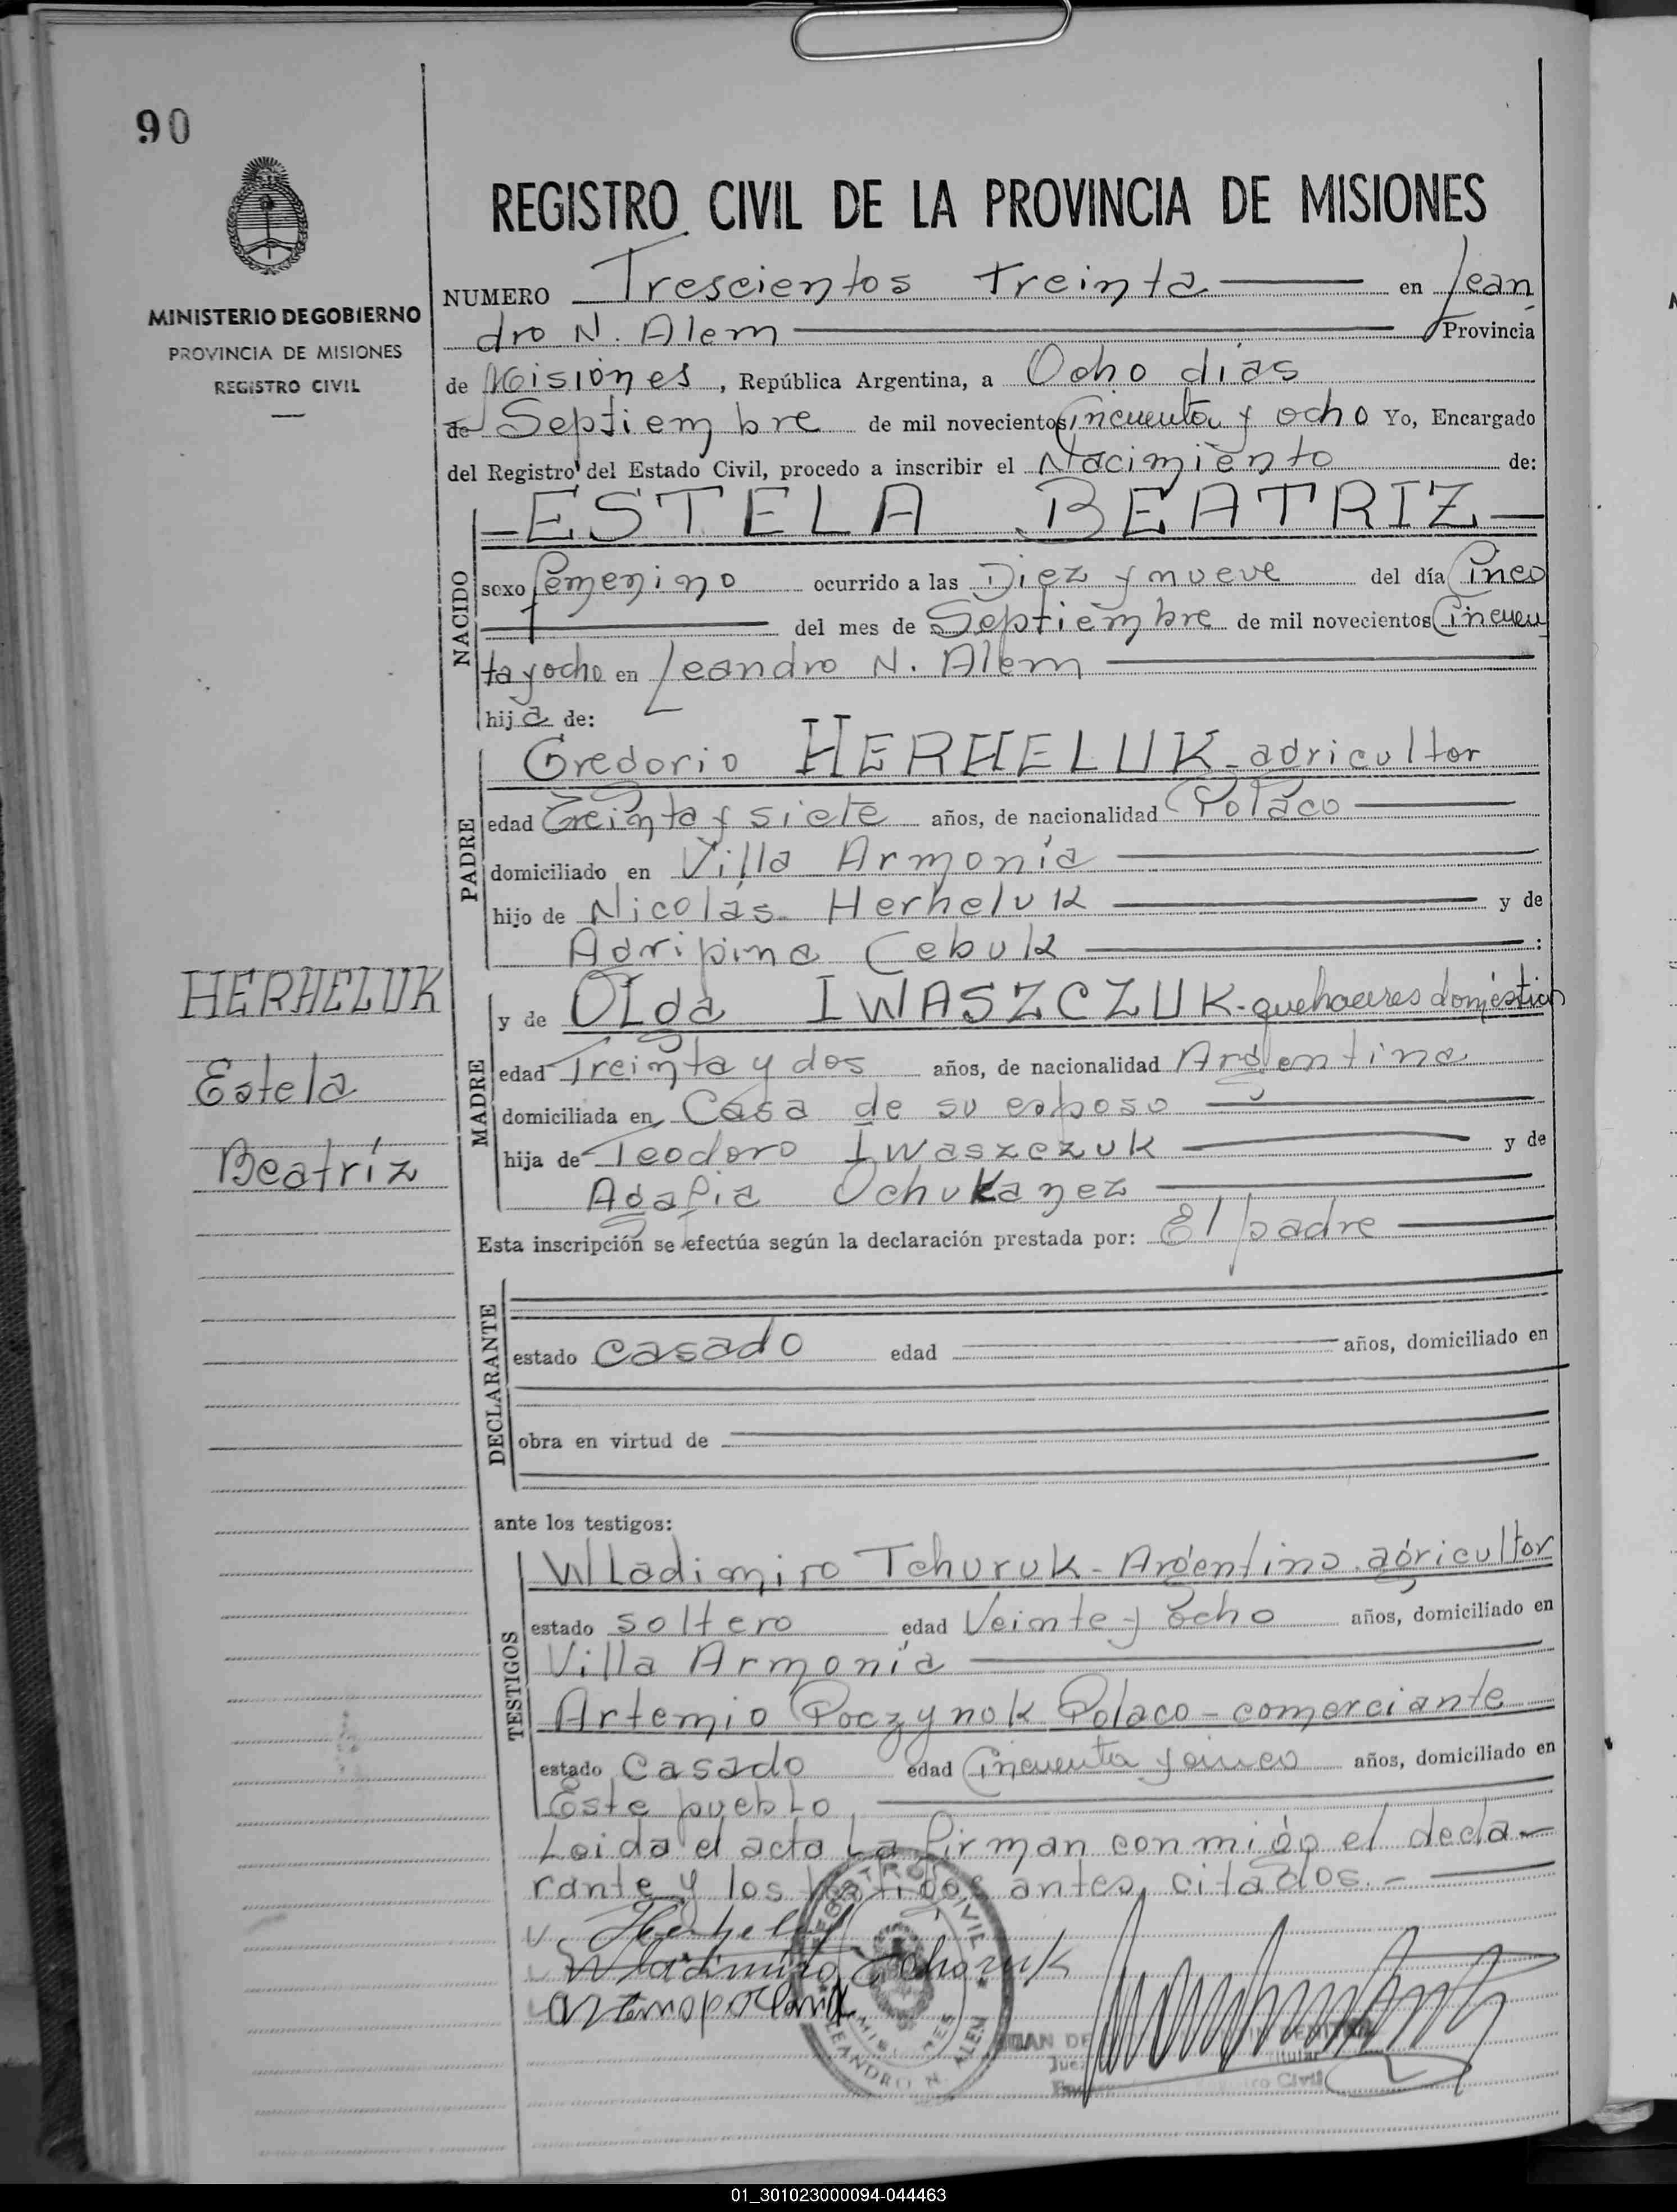 90
MINISTERIO DE GOBIERNO
PROVINCIA DE MISIONES
REGISTRO CIVIL
REGISTRO CIVIL DE LA PROVINCIA DE MISIONES
NUMERO Trescientos treinta en Lean
dro N. Alem Provincia
de Misiones, República Argentina, a Ocho días
de Septiembre de mil novecientos Cincuenta y ocho Yo, Encargado
del Registro del Estado Civil, procedo a inscribir el Nacimiento de:
NACIDO
ESTELA BEATRIZ
sexo femenino ocurrido a las Diez y nueve del día Cinco
del mes de Septiembre de mil novecientos Cincuen
ta y ocho en Leandro N. Alem
hija de:
PADRE
Gregorio HERHELUK - agricultor
edad Treinta y siete años, de nacionalidad Polaco
domiciliado en Villa Armonía
hijo de Nicolás Herheluk y de
Agripina Cebuk :
HERHELUK
Estela
Beatríz
MADRE
y de Olga IWASZCZUK - quehaceres domésticos
edad Treinta y dos años, de nacionalidad Argentina
domiciliada en Casa de su esposo
hija de Teodoro Iwaszczuk y de
Agafia Ochukanez
Esta inscripción se efectúa según la declaración prestada por: El padre
DECLARANTE
estado casado edad años, domiciliado en
obra en virtud de
ante los testigos:
TESTIGOS
Wladimiro Tchuruk - Argentino. agricultor
estado soltero edad Veinte y ocho años, domiciliado en
Villa Armonía
Artemio Poczynok Polaco - comerciante
estado Casado edad Cincuenta y cinco años, domiciliado en
Este pueblo
Leida el acta la firman conmigo el decla-
rante y los testigos antes citados. -
Wladimiro Tchoruk
REGISTRO CIVIL
MISIONES
LEANDRO N. ALEM
01_301023000094-044463